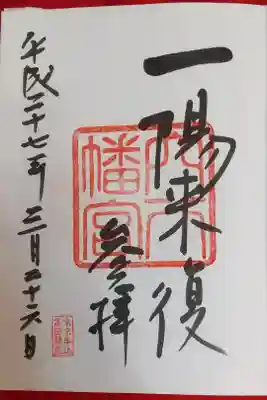 一陽来復
参拝
穴八
幡宮
平成二十七年三月二十六日